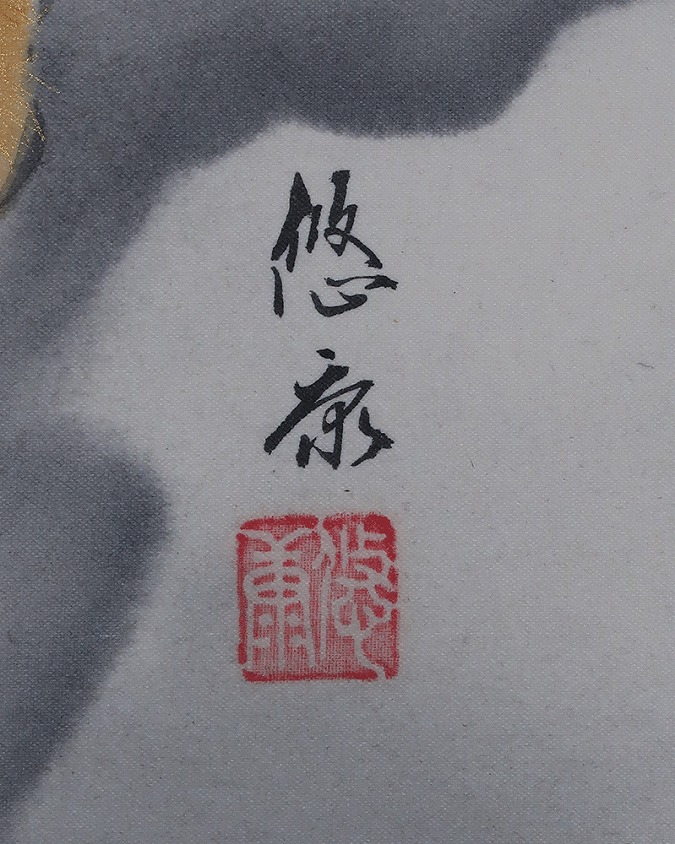 悠康
悠康